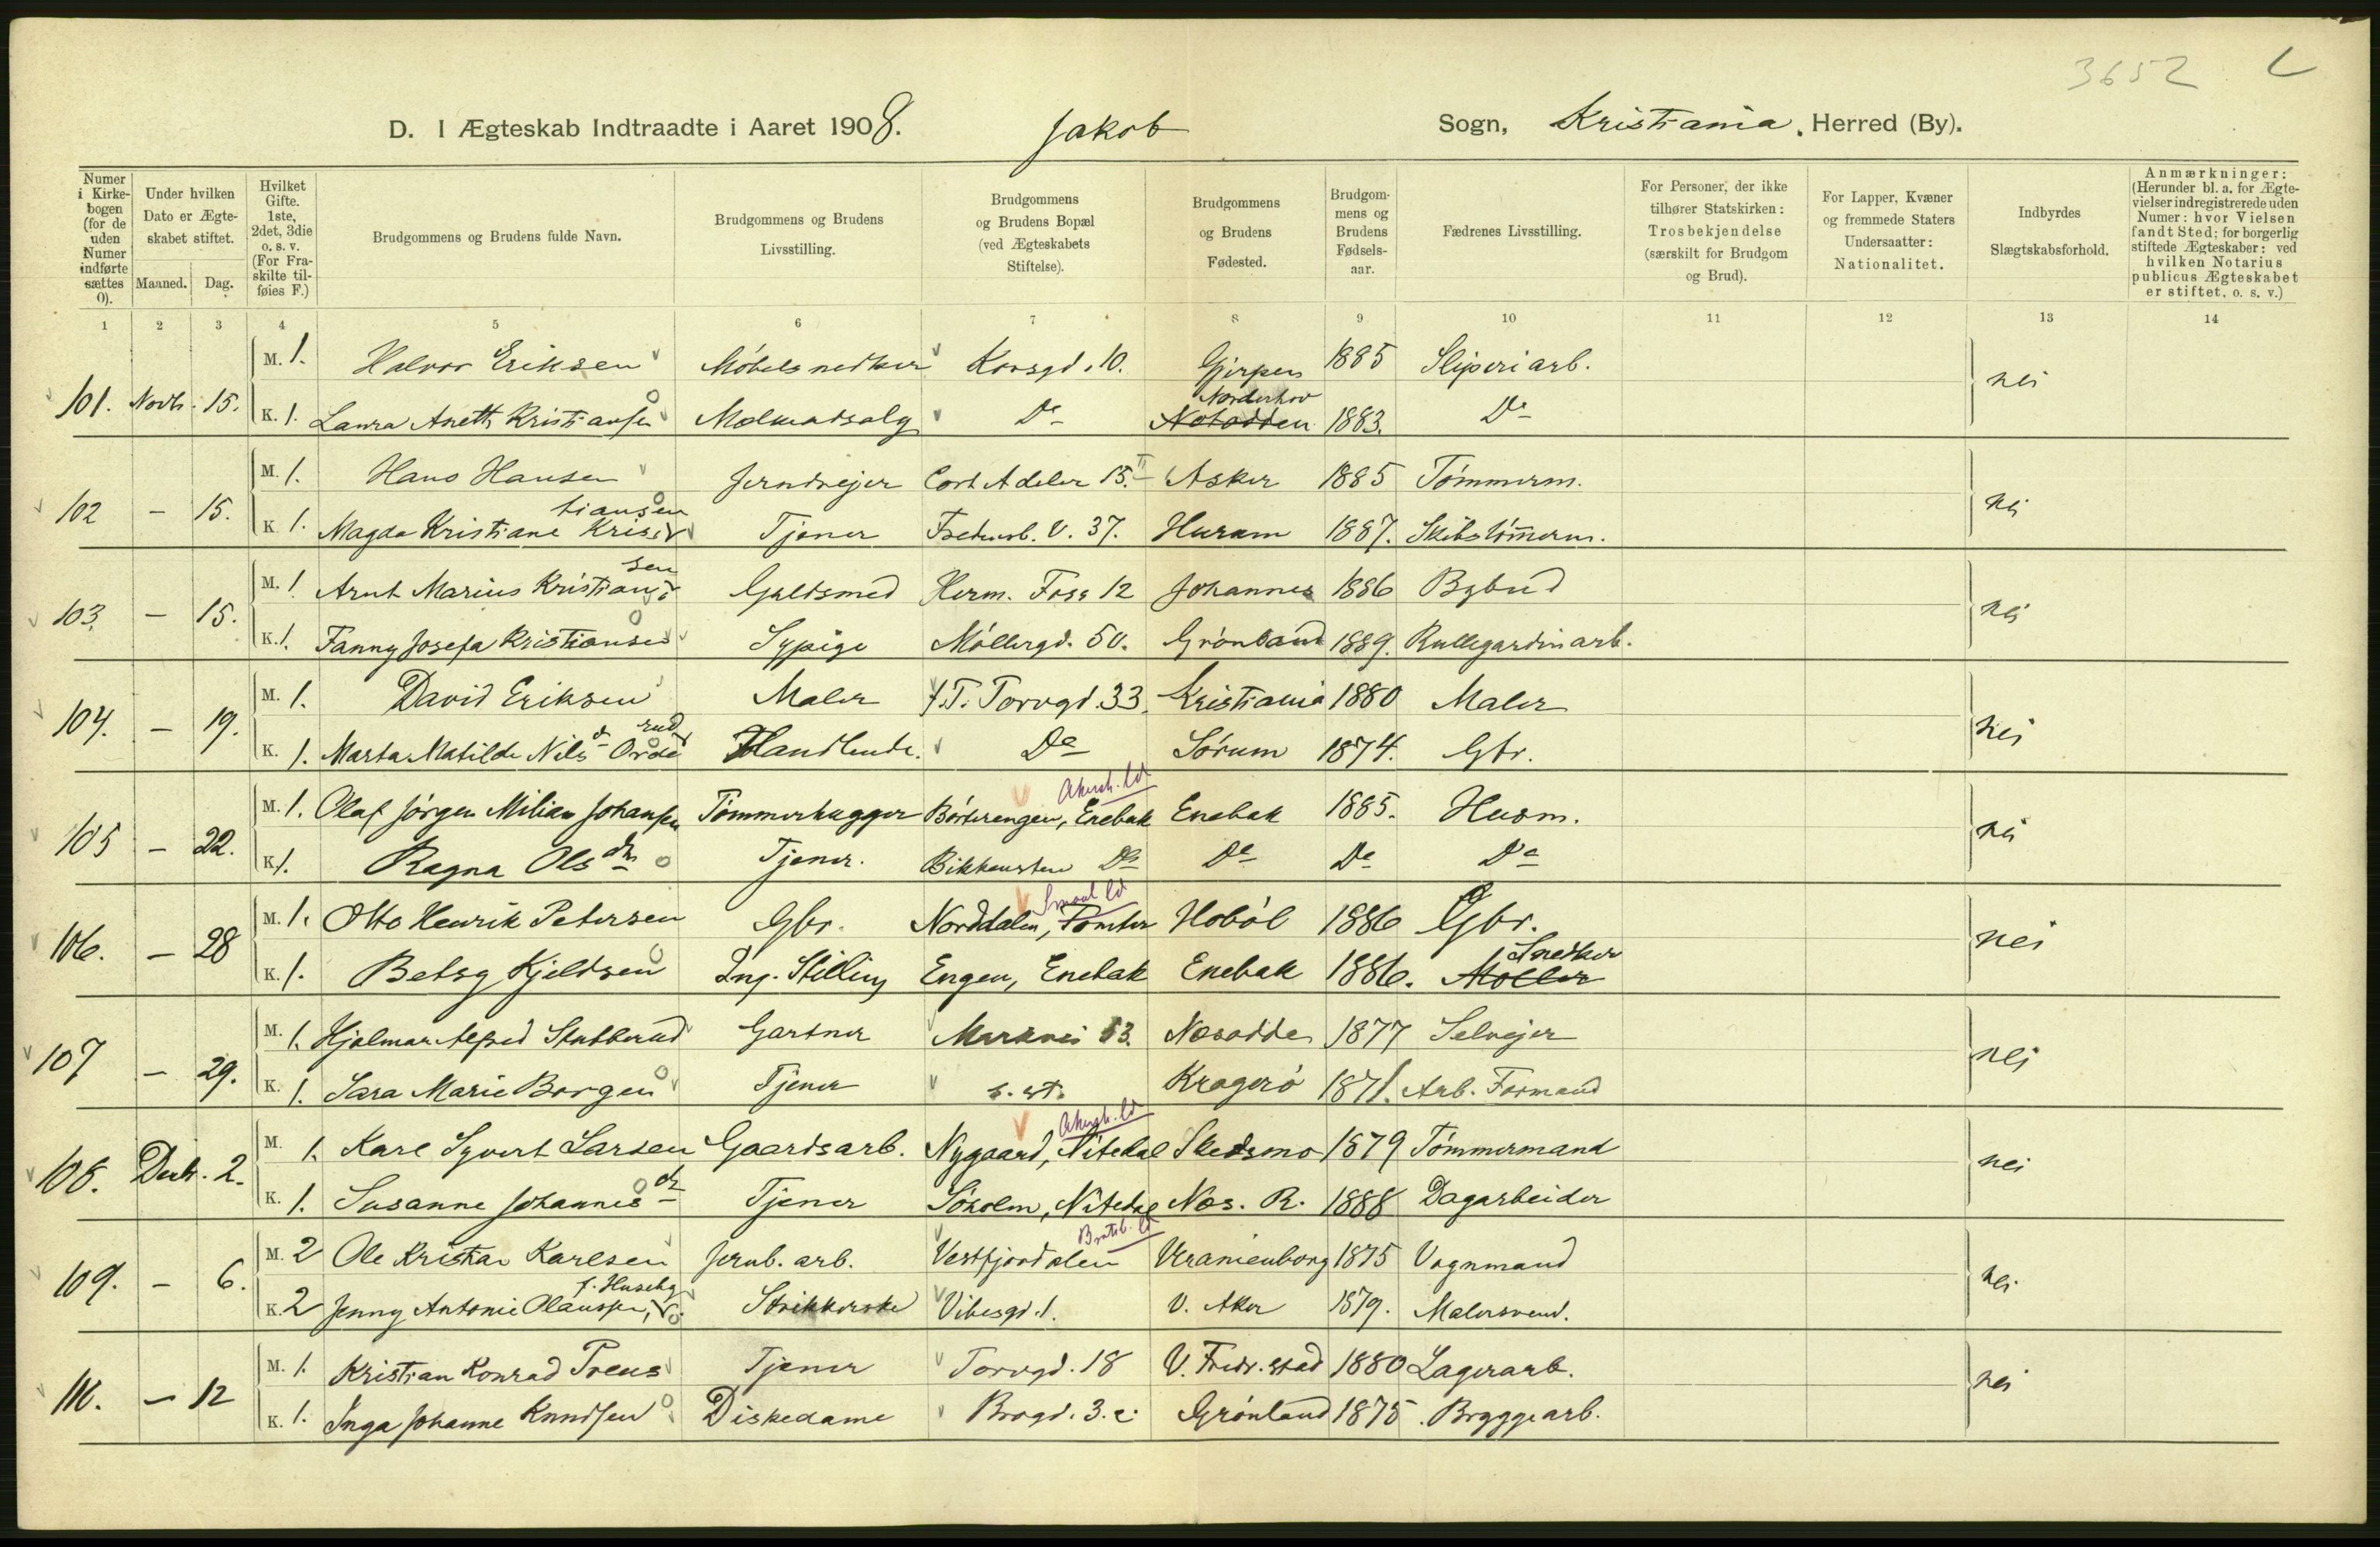 3652
D. I Ægteskab Indtraadte i Aaret 1908. Jakob Sogn, Kristiania, Herred (By).
Numer i Kirkebogen (for de uden Numer indførte sættes 0). Under hvilken Dato er Ægteskabet stiftet. Maaned. Dag. Hvilket Gifte. 1ste, 2det, 3die o. s. v. (For Fraskilte tilføies F.) Brudgommens og Brudens fulde Navn. Brudgommens og Brudens Livsstilling. Brudgommens og Brudens Bopæl (ved Ægteskabets Stiftelse). Brudgommens og Brudens Fødested. Brudgommens og Brudens Fødselsaar. Fædrenes Livsstilling. For Personer, der ikke tilhører Statskirken: Trosbekjendelse (særskilt for Brudgom og Brud). For Lapper, Kvæner og fremmede Staters Undersaatter: Nationalitet. Indbyrdes Slægtskabsforhold. Anmærkninger: (Herunder bl. a. for Ægtevielser indregistrerede uden Numer: hvor Vielsen fandt Sted; for borgerlig stiftede Ægteskaber: ved hvilken Notarius publicus Ægteskabet er stiftet, o. s. v.)
1 2 3 4 5 6 7 8 9 10 11 12 13 14
M. 1. Halvor Eriksen Møbelsnedker Korsgd. 10. Gjerpen 1885 Sliperiarb.
101. Novb. 15. nei
Norderhov
K. 1. Laura Aneth Kristiansen Melkeudsalg Do Notodden 1883. Do
M. 1. Hans Hansen Jerndrejer Cort Adeler 15. II Asker 1885 Tømmerm.
102 - 15. nei
tiansen
K. 1. Magda Kristiane Kris Tjener Fredensb. V. 37. Hurum 1887. Skibstømmerm.
sen
M. 1. Arnt Marius Kristian Guldsmed Herm. Foss 12 Johannes 1886 Bybud
103. - 15. nei
K. 1. Fanny Josefa Kristiansen Sypige Møllergd. 50. Grønland 1889. Rullegardinarb.
M. 1. David Eriksen Maler Torvgd. 33. Kristiania 1880 Maler
104. - 19. nei
rud
K. 1. Marta Matilde Nilsd Orde Handlende. Do Sørum 1874. Gbr.
Akersh. ld
M. 1. Olaf Jørgen Milian Johansen Tømmerhugger Børterengen, Enebak Enebak 1885. Husm.
105 - 22. nei
K. 1. Ragna Olsdtr Tjener. Bikkensten Do Do Do Do
Smaal. ld
M. 1. Otto Henrik Petersen Gbr. Norddalen, Tomter Hobøl 1886 Gbr.
106. - 28 nei
Snedker
K. 1. Betsy Kjeldsen Ing. Stilling Engen, Enebak Enebak 1886. Møller
M. 1. Hjalmar Alfred Stubberud Gartner Markvei 53. Nesodden 1877 Selvejer
107 - 29. nei
K. 1. Sara Marie Borgen Tjener s. st. Kragerø 1871. Arb. Formand
Akersh. ld
M. 1. Karl Syvert Larsen Gaardsarb. Nygaard, Nitedal Skedsmo 1879 Tømmermand
108. Decb. 2. nei
K. 1. Susanne Johannesdtr Tjener Søholm, Nitedal Nes. R. 1888 Dagarbeider
Bratsb. ld
M. 2 Ole Kristian Karlsen Jernb. arb. Vestfjordalen Uranienborg 1875 Vognmand
109. - 6. nei
f. Huseby
K. 2 Jenny Antonie Olaussen, Strikkerske Vibesgd. 1. V. Aker 1879. Malersvend.
M. 1. Kristian Konrad Preus Tjener Torvgd. 18 V. Fredr.stad 1880 Lagerarb.
110. - 12 nei
K. 1. Inga Johanne Knudsen Diskedame Brogd. 3. c. Grønland 1875. Bryggearb.